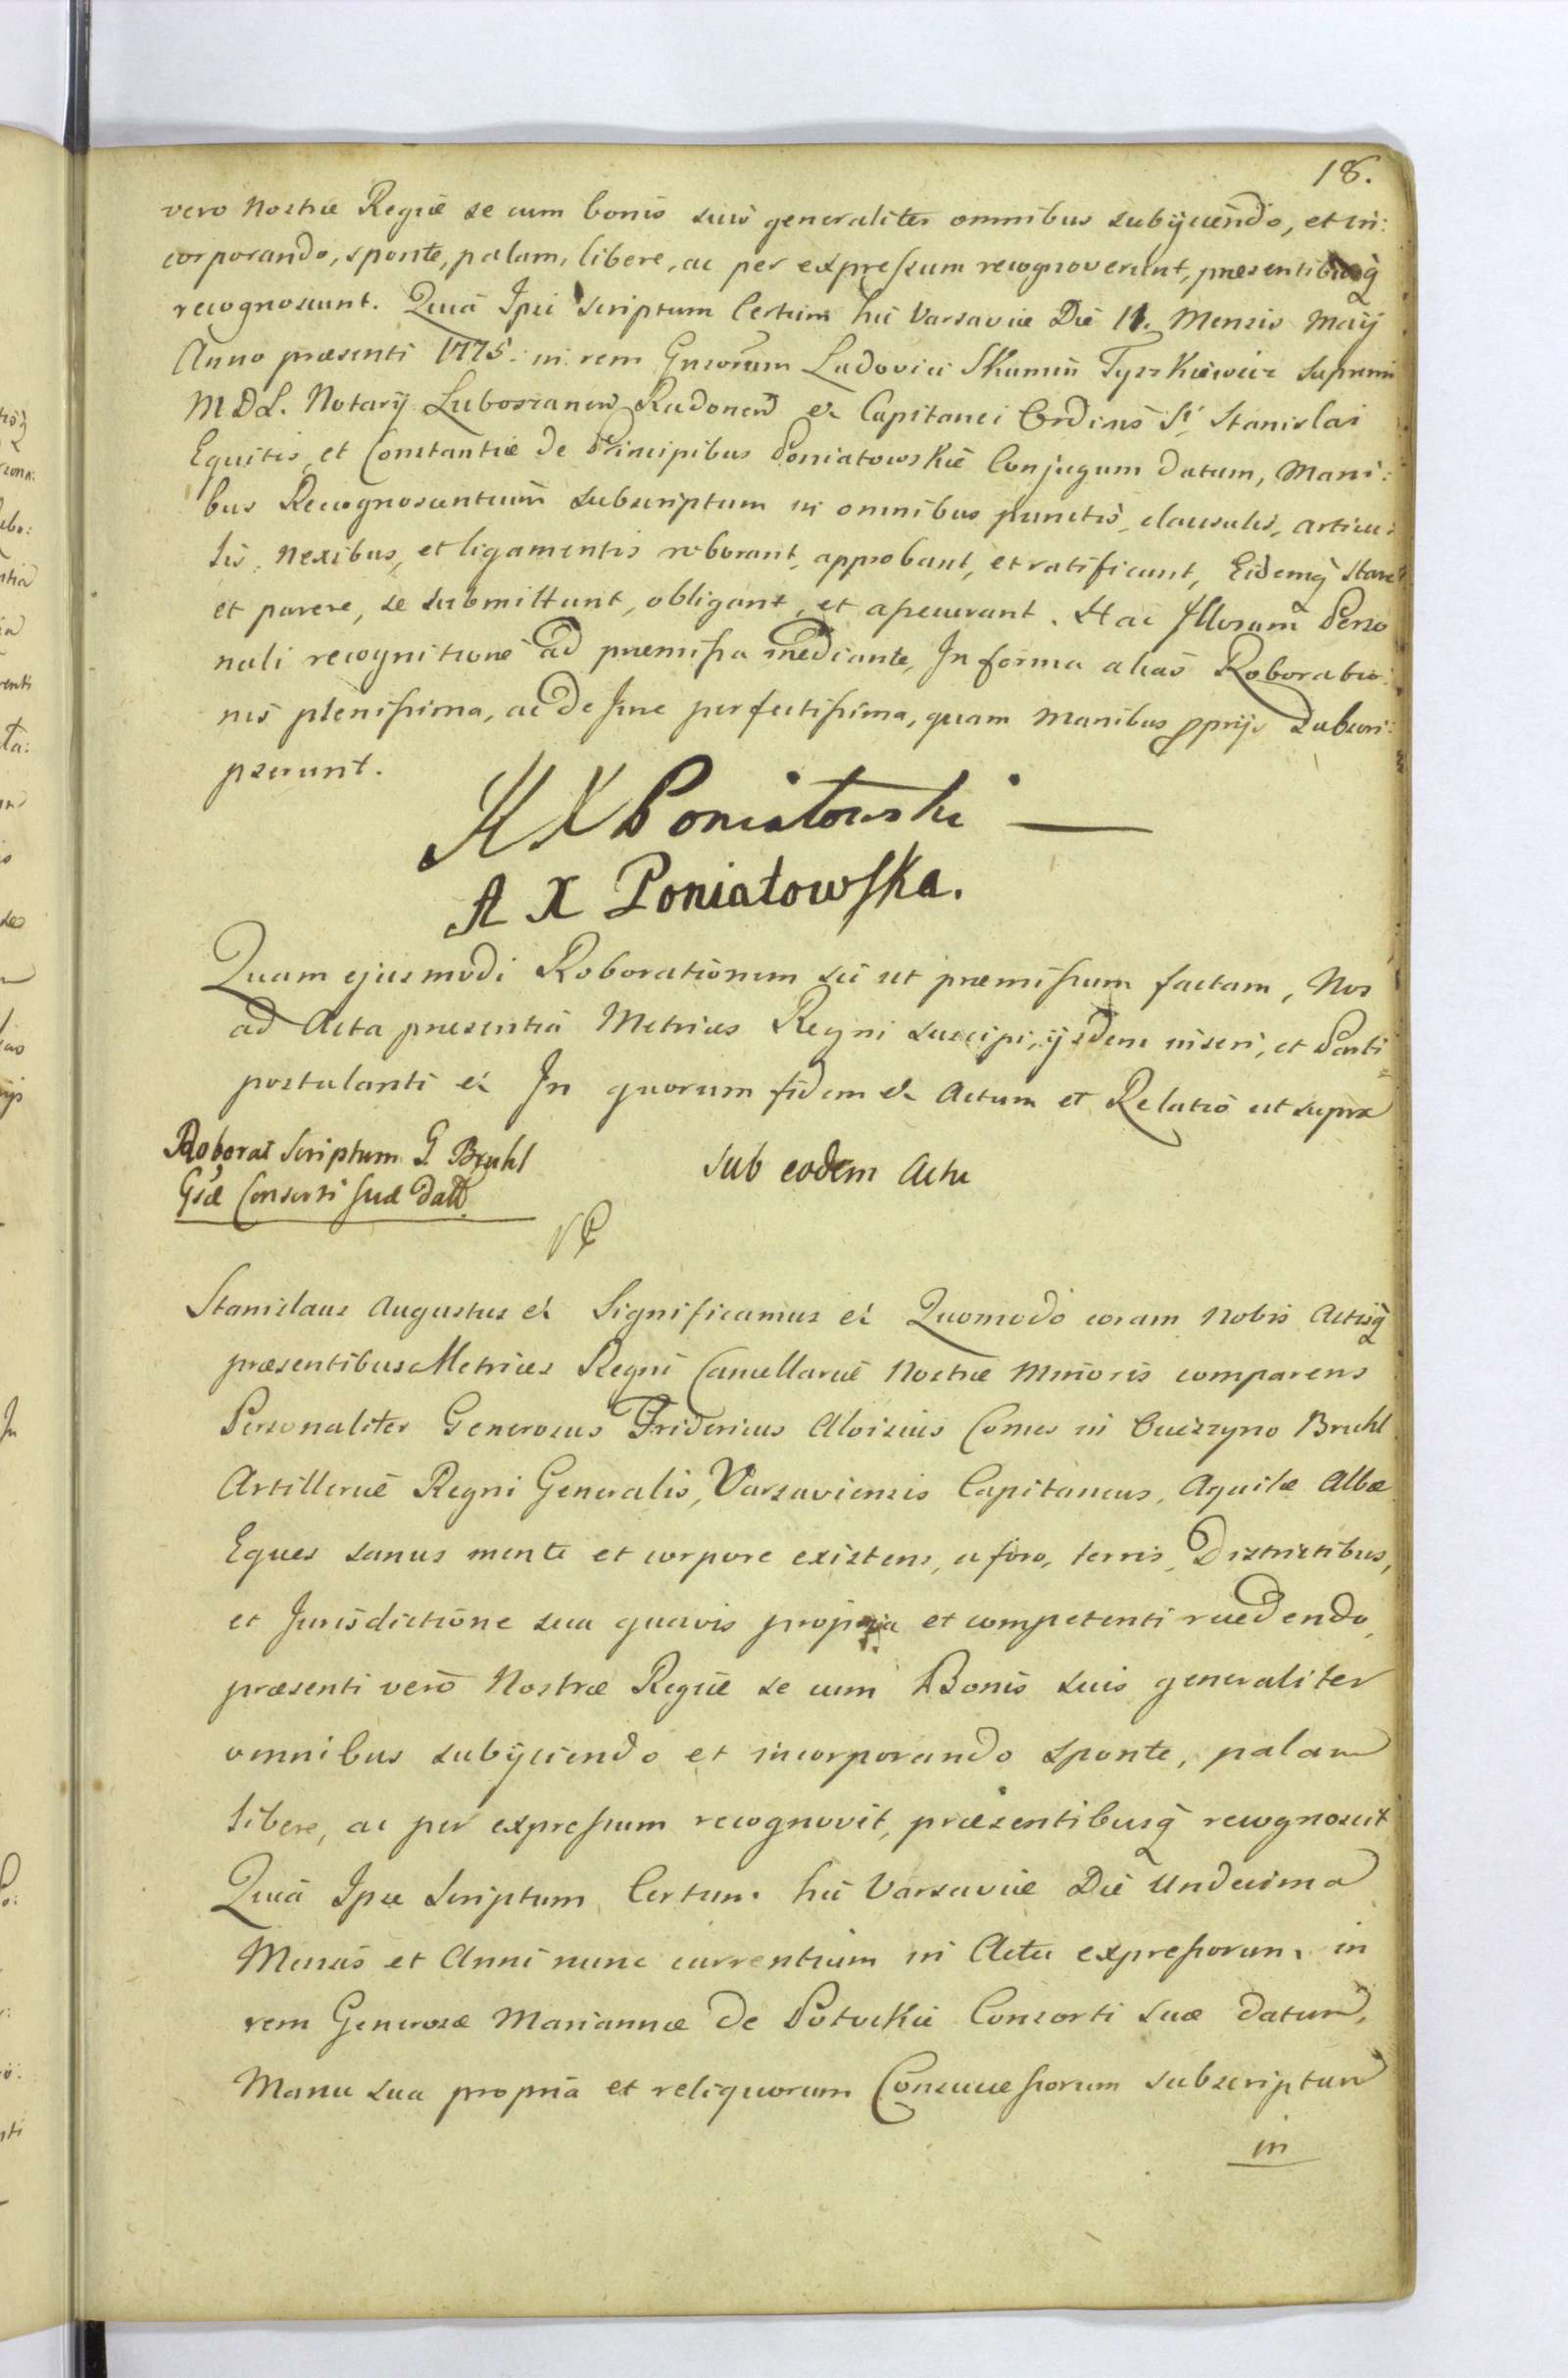 18.
vero Nostræ Regiæ se cum bonis suis generaliter omnibus subijciendo, et in:
corporando, sponte, palam, libere, ac per expressum recognoverunt, præsentibusq
recognoscunt. Quia Ipsi Scriptum Certum hic Varsaviæ Die 11. Mensis Maij
Anno præsenti 1775. in rem Gnsorum Ludovici Skumin Tyszkiewicz Supremi
M D L. Notarij Luboszanen Radonen & Capitanei Ordinis Sti Stanislai
Equitis, et Constantiæ de Principibus Poniatowskie Conjugum datum, Mani:
bus Recognoscentium subscriptum in omnibus punctis, clausulis, articu:
lis, nexibus, et ligamentis roborant, approbant, et ratificant, Eidemq stare
et parere, se submittunt, obligant, et assecurant. Hac Illorum Perso
nali recognitione ad præmissa mediante, In forma alias Roboratio:
nis plenissima, ac de Jure perfectissima, quam Manibus pprijs Subscri:
pserunt.
K X Poniatowski
A X Poniatowska.
Quam ejusmodi Roborationem sic ut præmissum factam, Nos
ad Acta præsentia Metrices Regni suscipi, ijsdem inseri, et Parti
postulanti & In quorum fidem & Actum et Relatio ut supra
Roborat Scriptum G. Bruhl
Gsæ Consorti suæ datt.
Sub eodem Actu
Stanislaus Augustus & Significamus & Quomodo coram Nobis Actisq
præsentibus Metrices Regni Cancellariæ Nostræ Minoris comparens
Personaliter Generosus Fridericus Aloisius Comes in Ocieszyno Bruhl
Artilleriæ Regni Generalis, Varsaviensis Capitaneus, Aquilæ Albæ
Eques sanus mente et corpore existens, a foro, terris, Districtibus,
et Jurisdictione sua quavis propria et competenti recedendo,
præsenti vero Nostræ Regiæ se cum Bonis suis generaliter
omnibus subijciendo et incorporando sponte, palam
libere, ac per expressum recognovit, præsentibusq recognoscit
Quia Ipse Scriptum Certum hic Varsaviæ Die Undecima
Mensis et Anni nunc currentium in Actu expressorum in
rem Generosæ Mariannæ de Potockie Consorti suæ datum,
Manu sua propria et reliquorum Consuccessorum subscriptum
in